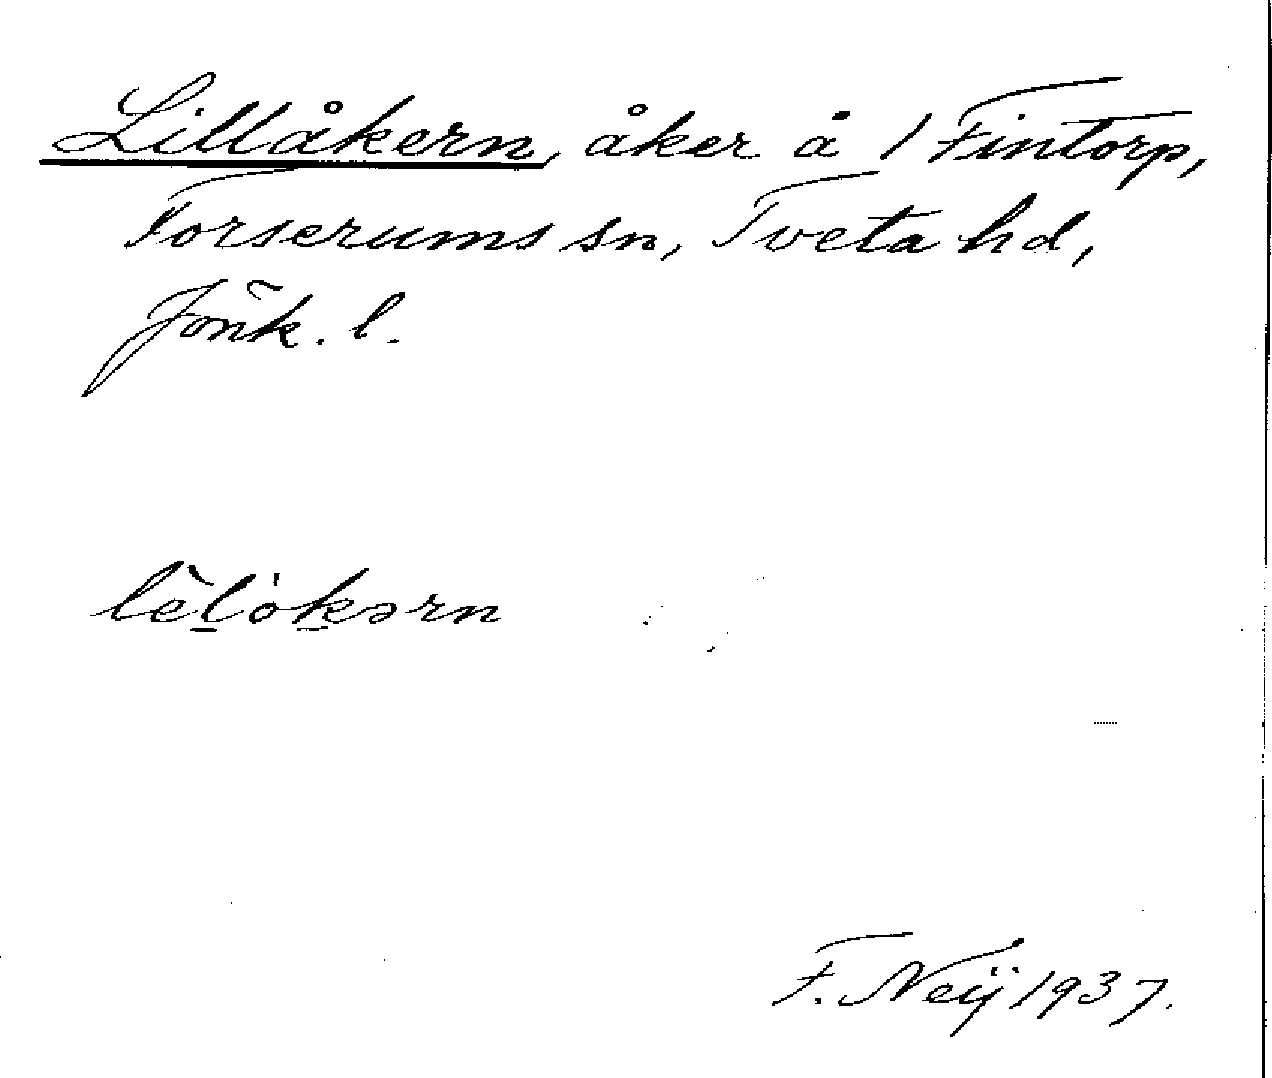 Lillåkern, åker å 1 Fintorp,
Forserums sn, Tveta hd,
Jönk. l.
lèl̠ȯk̠ərn
F. Neÿ 1937.